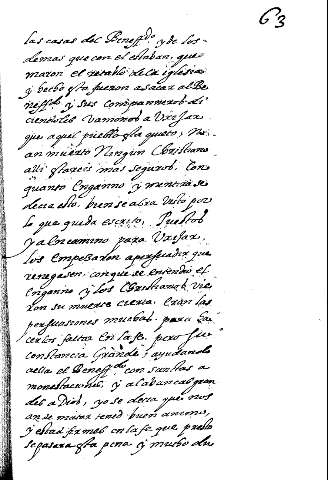 63
las casas del Beneff.do y de los
demas que con el estaban, que
maron el retablo de la iglesia
y hecho esto fueron a sacar al Be
neff.do y sus companneros di
ciendoles vamonos a Vxixar
que aquel pueblo esta quieto, No
an muerto Ningun Christiano
alli estareis mas seguros. Con
quanto Enganno y mentira se
decia esto. bien se a lia visto por
lo que queda escrito. Puestos
ya en camino para Vxixar
los Empesaron a persuadir que
renegasen. con que se entendio el
Enganno y los Christianos vie
ron su muerte cierta. Eran las
persuasiones muchas. para ha
cerlos faltar En la fe. pero su
constancia Grande; ayudando
a ella el Beneff.do con sanctas a
monestaciones, y alabancas gran
des a Dios, yo se decia que nos
an de matar tened buen animo,
y estad firmes en la fe que presto
se pasara esta pena y mucho du